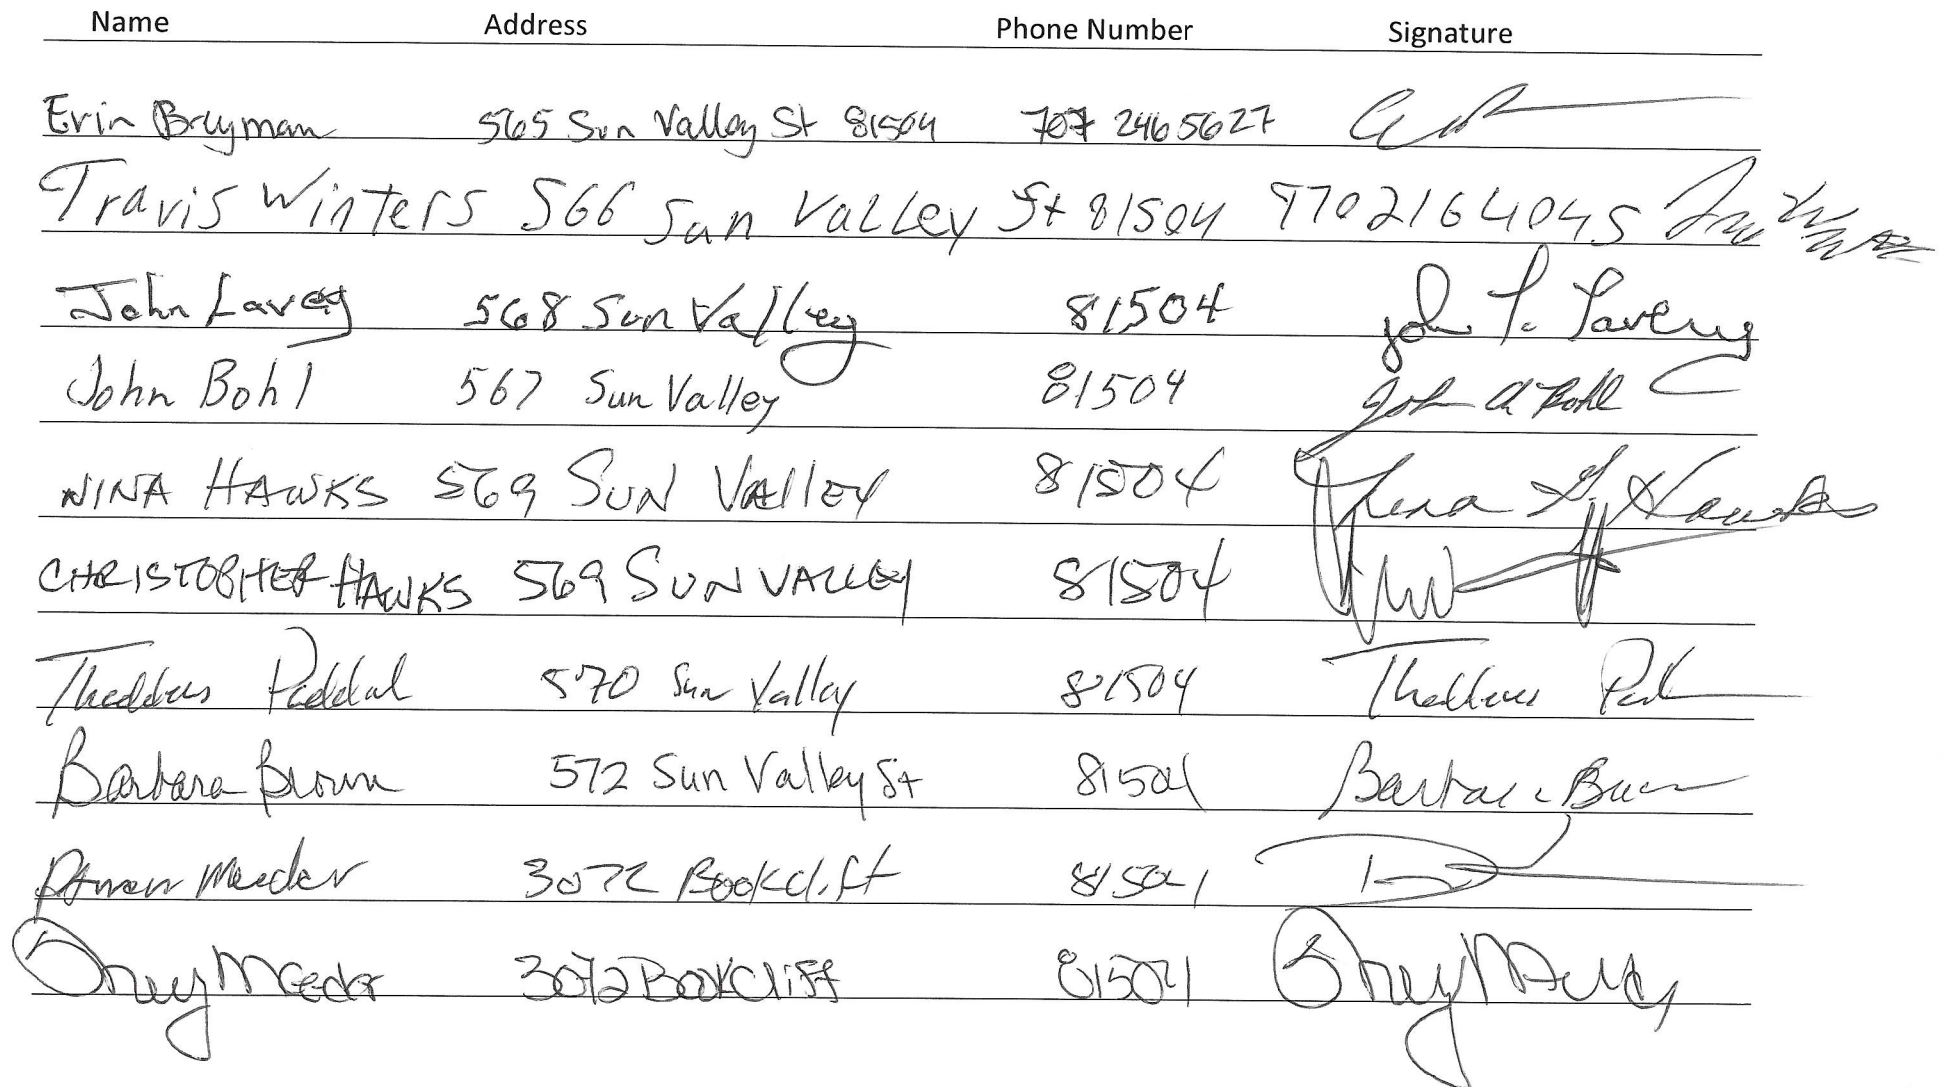 Name Address Phone Number Signature
Erin Bryman 565 Sun Valley St 81504 707 2465627
Travis Winters 566 Sun Valley St 81504 9702164045
John Lavey 568 Sun Valley 81504 John P. Lavey
John Bohl 567 Sun Valley 81504 John A Bohl
NINA HAWKS 569 SUN VALLEY 81504 Nina G. Hawks
CHRISTOPHER HAWKS 569 SUN VALLEY 81504
Thaddeus 570 Sun Valley 81504 Thaddeus
Barbara Brown 572 Sun Valley St 81504 Barbara Brown
Meeder 3072 Bookclift 81504
Meeder 3072 Bookcliff 81504